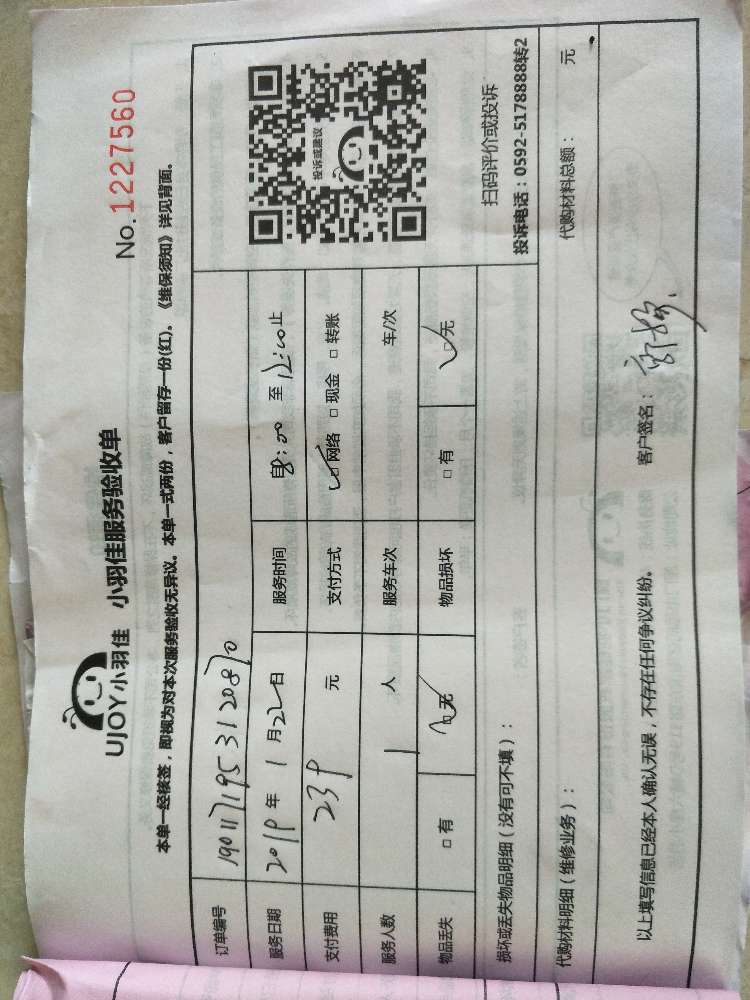 UJOY小羽佳 小羽佳服务验收单
No.1227560
本单一经核签，即视为对本次服务验收无异议。本单一式两份，客户留存一份(红)。《维保须知》详见背面。
订单编号 1901171953120870
服务日期 2019年1月22日 服务时间 8:00至12:00止
支付费用 239元 支付方式 ☑网络 □现金 □转账
服务人数 1人 服务车次 车/次
物品丢失 □有 ☑无 物品损坏 □有 ☑无
投诉或建议
扫码评价或投诉
投诉电话：0592-5178888转2
损坏或丢失物品明细（没有可不填）：
代购材料明细（维修业务）： 代购材料总额： 元
以上填写信息已经本人确认无误，不存在任何争议纠纷。 客户签名：